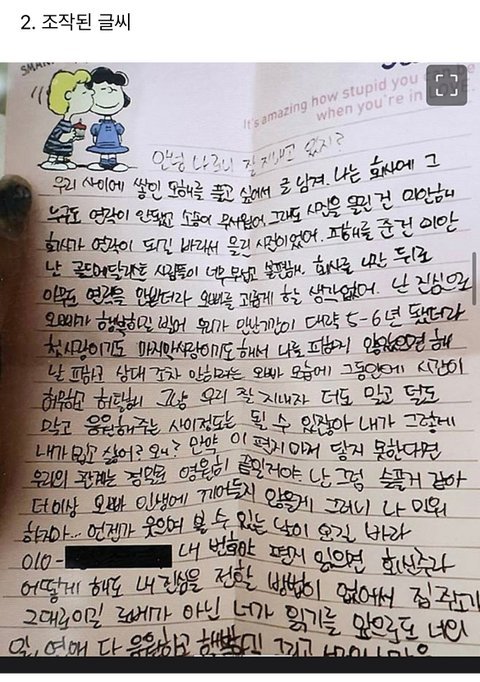 2. 조작된 글씨
SMA
It's amazing how stupid you can be
when you're in love.
안녕 나르니 잘 지내고 있지?
우리 사이에 쌓인 오해를 풀고 싶어서 글 남겨. 나는 회사에 그
누구도 연락이 안됐고 소송이 무서웠어 그래도 시멘을 올린 건 미안해
회사가 연락이 되길 바라서 올린 시멘이었어. 피해를 준건 미안
난 골드메달라는 사람들이 너무 무섭고 불편해. 회사를 나간 뒤로
아무도 연락을 안받더라 오빠를 괴롭게 할 생각없어. 난 진심으로
오빠가 행복하길 빌어 우리가 만난기간이 대략 5-6년 됐더라
첫사랑이기도 마지막사랑이기도 해서 나를 피하지 않았으면 해
날 피하고 상대 조차 안하려는 오빠 모습에 그동안에 시간이
허무하고 허탈해 그냥 우리 잘 지내자 더도 말고 덜도
말고 응원해주는 사이정도는 될 수 있잖아 내가 그렇게
내가 밉고 싫어? 왜? 만약 이 편지마저 닿지 못한다면
우리의 관계는 정말로 영원히 끝일거야. 난 그럼 슬플거 같아
더이상 오빠 인생에 끼어들지 않을게 그러니 나 미워
하지마... 언젠가 웃으며 볼 수 있는 날이 오길 바라
010- 내 번호야 편지 읽으면 회신주라
어떻게 해도 내 진심을 전할 방법이 없어서 집 주소가
그대로이길 로베가 아닌 너가 읽기를 앞으로도 너의
일, 연애 다 응원하고 행복하기 그리고